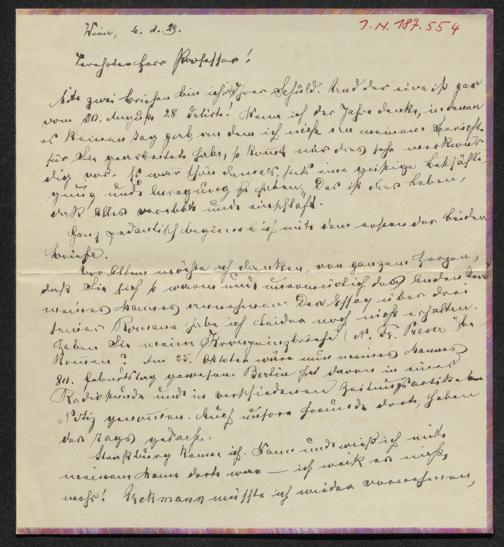 J.N. 187.554
Wien, 4. d. 29.
Verehrter Herr Professor!
Mit zwei Briefen bin ich Ihrer Schuld. Und der eine ist gar
vom 20. August 28 datirt! Wenn ich der Jahre denke, in denen
es keinen Tag gab an dem ich nicht an meinem Bericht
für Sie gearbeitet habe, so kommt mir das sehr merkwür-
dig vor. Es war schön damals, stets eine geistige Bethäti-
gung und Anregung zu haben. Das ist das Leben,
daß Alles verebbt und einschläft.
Ganz pedantisch beginne ich mit dem ersten der beiden
Briefe.
Vor Allem möchte ich danken, von ganzem Herzen,
daß Sie sich so warm und unermüdlich des Andenkens
meines Mannes annehmen. Den Essay über drei
seiner Romane habe ich leider noch nicht erhalten.
Haben Sie meine (N. Fr. Presse) be-
kommen? Am 25. Oktober wäre nun meines Mannes
80. Geburtstag gewesen. Berlin hat davon in einer
Radiostunde und in verschiedenen Zeitungsartikeln
Notiz genommen. Auch unsere Freunde dort, haben
des Tags gedacht.
Straßburg kenne ich. Wann und wieso ich mit
meinem Mann dort war — ich weiß es nicht
mehr! Eckmann müsste ich wieder vornehmen,